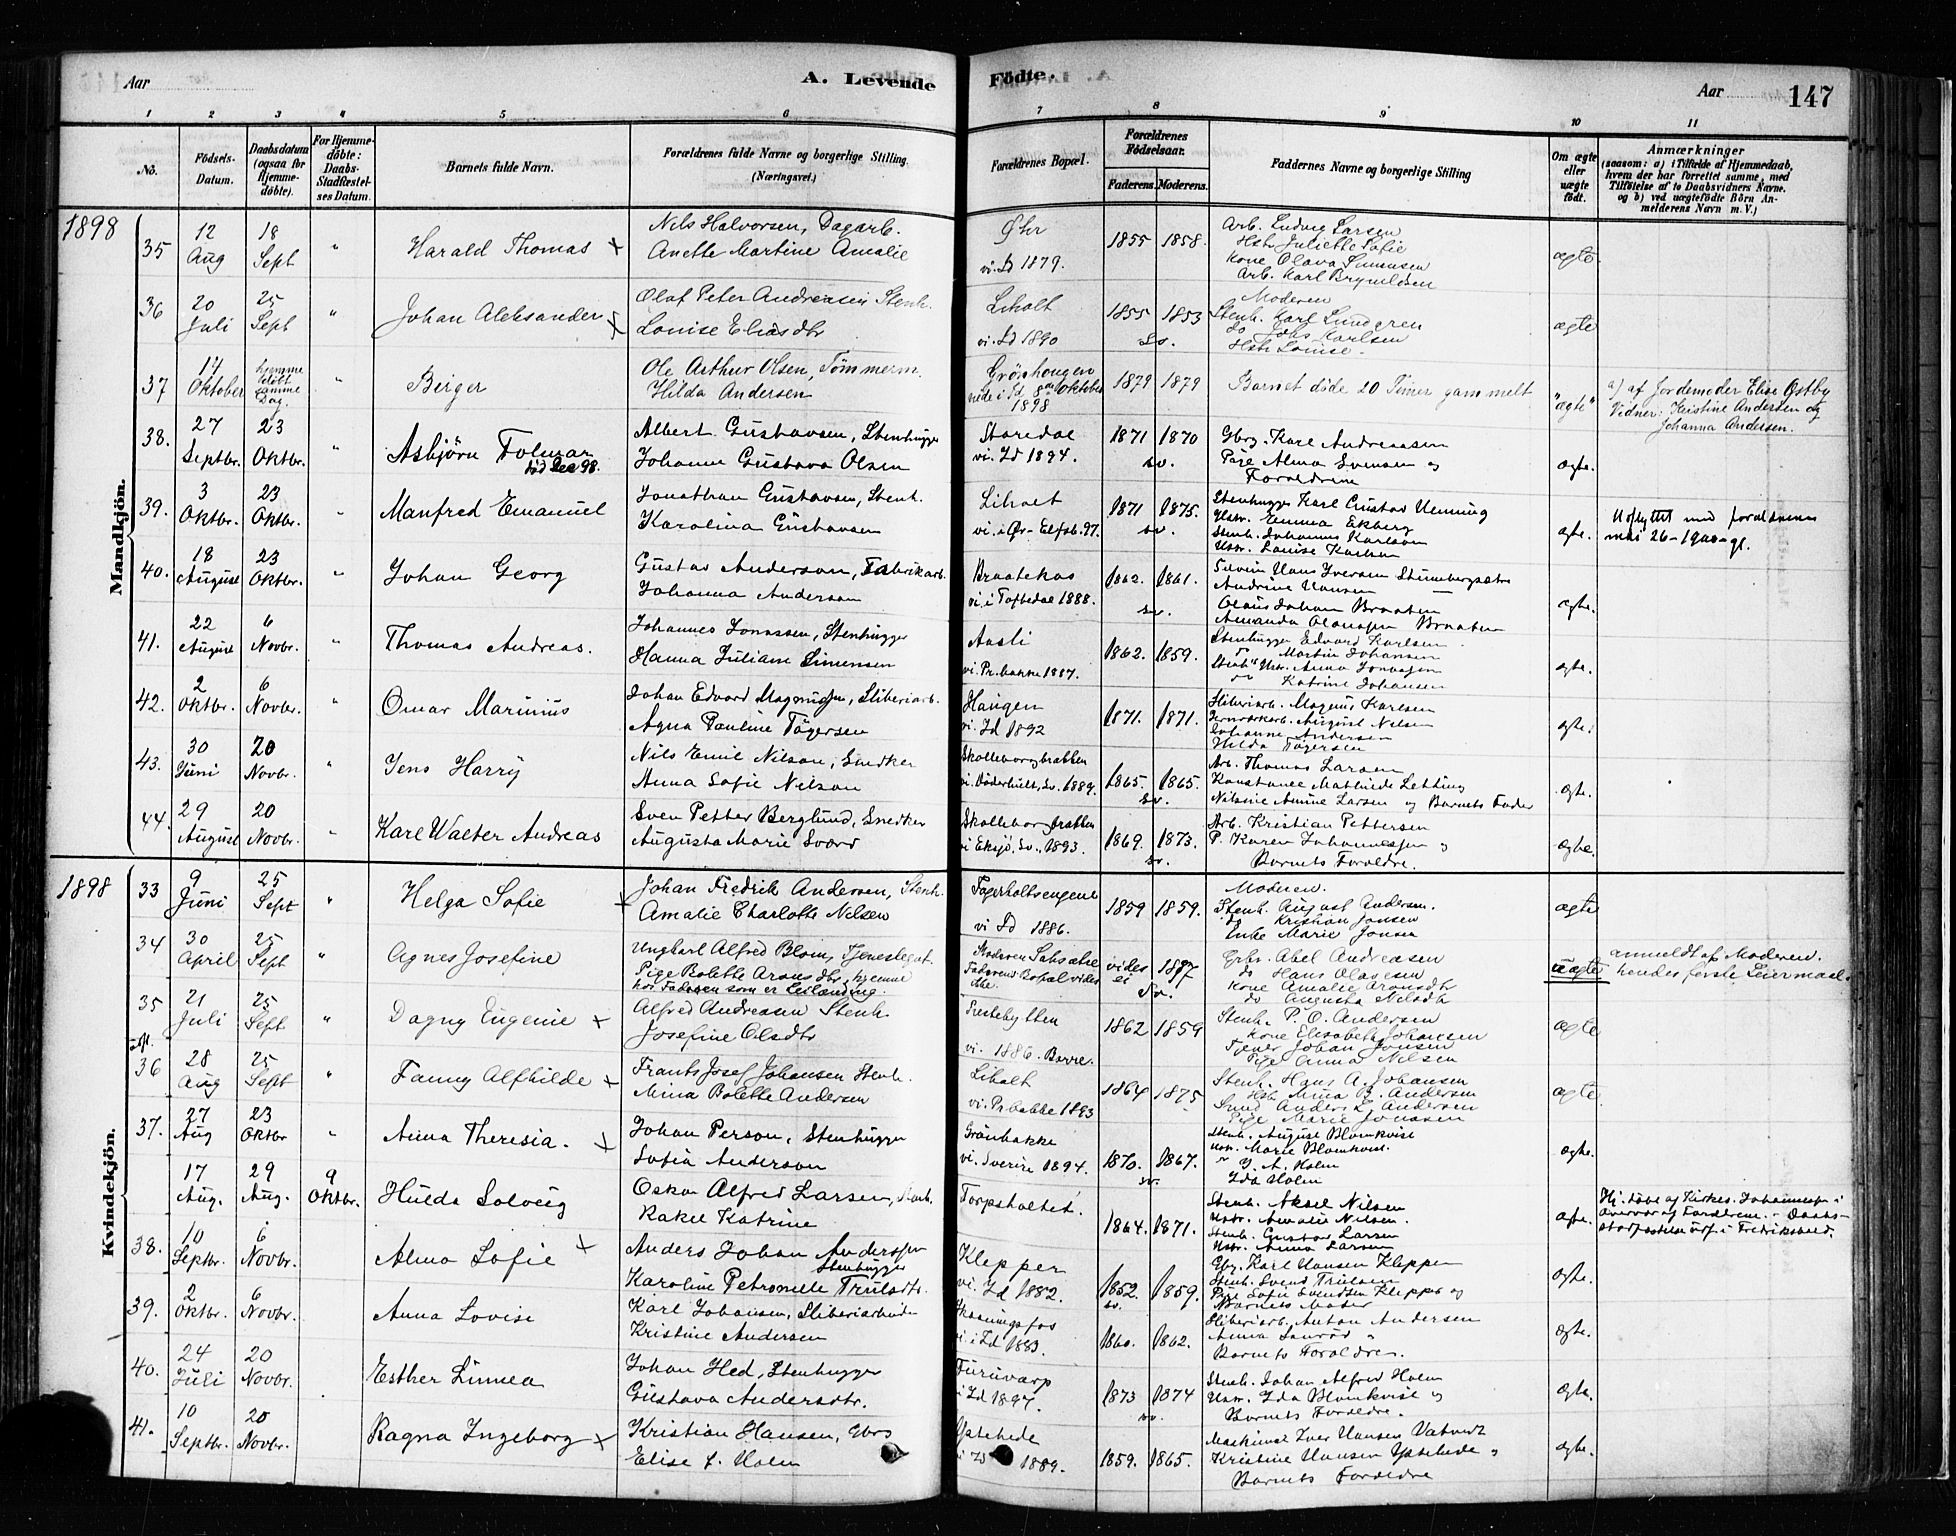 Aar
A. Levende
Födte.
Aar
147
1 2 3 4 5 6 7 8 9 10 11
No.
Födsels-Datum.
Daabsdatum (ogsaa for Hjemme-döbte).
For Hjemme-döbte: Daabs-Stadfæstel-ses Datum.
Barnets fulde Navn.
Forældrenes fulde Navne og borgerlige Stilling. (Næringsvei.)
Forældrenes Bopæl.
Forældrenes Födselsaar.
Faderens. Moderens.
Faddernes Navne og borgerlige Stilling
Om ægte eller uægte födt.
Anmærkninger
(saasom: a) i Tilfælde af Hjemmedaab, hvem der har forrettet samme, med Tilföielse af to Daabsvidners Navne. og b) ved uægtefödte Börn An-melderens Navn m. V.)
Mandkjön.
1898
35 12 Aug 18 Sept " Harald Thomas
Nils Halvorsen, Dagarb.
Anette Martine Amalie
vi. Id 1879.
1855 1858.
Arb. Ludvig Larsen
Hstr Juliette Sofie
Kone Olava Simensen
Arb. Karl Brynildsen
ægte
36 20 Juli 25 Sept " Johan Aleksander
Olaf Peter Andreasen Stenh.
Louise Eliasdtr
Liholt
vi. Id 1890
1855 1853
Sv.
Moderen
Stenh. Karl Lundgren
do Johs Karlsen
Hstr Louise.
ægte
37 14 Oktober hjemme döbt samme Dag. " Birger
Ole Arthur Olsen, Tömmerm.
Hilda Andersen
Grönhaugen
1898
1879 1879
Barnet döde 20 Timer gammelt
"ægte"
a) af Jordemoder Elise Østby
Vidner: Kristine Andersen og
Johanna Andersen.
38. 27 Septbr. 23 Oktbr. " Asbjörn Folmar
död Dec 98.
Albert Gustavsen, Stenhugger
Johanne Gustava Olsen
Staredal
vi. Id 1894.
1871 1870
sv.
Gbrg. Karl Andreassen
Pige Alma Svensen og
Forældrene
ægte.
39. 3 Oktbr. 23 Oktbr. Manfred Emanuel
Jonathan Gustavsen, Stenh.
Karolina Gustavsen
Liholt
1871 1875.
sv.
Stenhugger Karl Gustav Henning
Hstr. Emma Ekberg
Stenh. Johannes Karlsson
Hstr. Louise Karlson
ægte.
Udflyttet med forældrene
mai 26-1900-
40. 18 August 23 Oktbr. " Johan Georg
Gustav Anderson, Fabrikarb.
Johanna Anderson
Braatekas
1862. 1861.
sv.
Andrine Hansen
Olaus Johan Braaten
Amanda Olaussen Braaten
ægte.
41. 22 August 6 Novbr. " Thomas Andreas.
Johannes Jonassen, Stenhugger
Hanna Juliane Simensen
Aasli
vi. Pr.bakke 1887.
1862. 1859.
Stenhugger Edvard Karlsen.
" Martin Johansen
Stenh" Hstr. Anna Jonassen
Katrine Johansen
ægte.
42. 2 Oktbr. 6 Novbr. " Omar Marinius
Johan Edvard Magnussen, Sliberiarb.
Agna Pauline Tögersen
Haugen
vi. Id 1892
1871. 1871.
Sliberiarb. Magnus Karlsen
Jernværkarb. August Nilsen
Johanne Andersen
Hilda Tögersen
ægte.
43. 30 Juni 20 Novbr. " Jens Harry
Nils Emil Nilson, Snedker
Anna Sofie Nelson
Skolleborgbrakken
1865. 1865.
sv.
Arb. Thomas Larsen
Konstance Mathilde Letting
Nilsine Amine Larsen og Barnets Fader
ægte.
44. 29 August 20 Novbr. " Karl Walter Andreas
Sven Petter Berglund, Snedker
Augusta Marie Svärd
Skolleborgbrakken
vi Eksjö, Sv., 1893.
1869. 1873.
sv.
Arb. Kristian Pettersen
P. Karen Johannessen og
Barnets Forældre.
ægte.
Kvindekjön.
1898
33 9 Juni 25 Sept " Helga Sofie
Johan Fredrik Andersen, Stenh.
Amalie Charlotte Nelsen
Fagerholtsengene
vi Id 1886.
1859 1859.
Moderen.
Stenh. August Andersen.
do Kristian Jonsen
Enke Marie Jonsen
ægte
34 30 April 25 Sept " Agnes Josefine
Ungkarl Alfred Blom, Tjenestegut.
Pige Bolette Aronsdtr, hjemme
hos Faderen som er Leilænding
Faderens Bopæl vides ikke.
vides ei 1877
Sv.
Grbr. Abel Andreasen
do Hans Olavesen
Kone Amalie Aronsdtr
do Augusta Nilsdtr
uægte
anmeldt af Moderen.
hendes förste Leiermaal.
35 21 Juli 25 Sept " Dagny Eugenie
Alfred Andreasen Stenh.
Josefine Olsdtr
vi. 1886. Borre.
1862 1859
Stenh. P. O. Andersen
Kone Elisabeth Johansen
Tjener Johan Jonsen
Pige Anna Nilsen
ægte
36 28 Aug 25 Sept " Fanny Alfhilde
Frants Josef Johansen Stenh.
Mina Bolette Andersen
Liholt
vi. Prbakke 1893
1864 1875
Stenh. Hans A. Johansen
Hstr Mina B. Andersen
Smed Anders E. Andersen
Pige Marie Jonasen
ægte
37. 27 Aug 23 Oktbr " Anna Theresia.
Johan Person, Stenhugger
Sofia Anderson
Grönbakke
vi. Sverige 1894.
1870. 1867.
sv.
Stenh. August Blomkvist
Hstr. Marie Blomkvist.
" J. A. Holm
Ida Holm
ægte.
17 Aug. 29 Aug. 9 Oktbr. Hulda Solveig
Oskar Alfred Larsen, Stenh.
Rakel Katrine
Torpsholtet.
1864. 1871.
Stenh. Aksel Nilsen
Hstr. Amalie Nilsen.
Stenh. Gustav Larsen
Hstr. Anna Larsen
ægte.
Hj. döbt af Kirkes. Johannessen i
Overvær af Forældrene. - Daabs-
stadfæstelse udf. i Fredrikshald.
38. 10 Septbr. 6 Novbr. Alma Sofie
Anders Johan Anderssen
Stenhugger
Karoline Petronelle Trulsdtr.
Klepper
vi. Id 1882.
1852. 1859.
sv.
Gbr. Karl Hansen Klepper
Stenh. Svend Trulsen
Pige Sofie Svendsen Klepper og
Barnets Moder
ægte.
39. 2 Oktbr. 6 Novbr. Anna Lovise
Karl Johansen, Sliberiarbeider
Kristine Andersen
Skonningsfos
vi. i Id 1883.
1860. 1862.
Sliberiarb. Anton Andersen
Barnets Forældre.
ægte.
40. 24 Juli 20 Novbr. Esther Linnea
Johan Hed, Stenhugger
Gustava Andersdtr.
Furuvarp
i Id 1897.
1873 1874
sv.
Stenh. Johan Alfred Holm
Hstr. Ida Blomkvist og
Barnets Forældre.
ægte.
41. 10 Septbr. 20 Novbr. Ragna Ingeborg
Kristian Hansen, Gbrs
Elise f. Holm
Ystehede
1889.
1859. 1865.
Maskinist Iver Hansen
Kristine Hansen Ystehede og
Barnets Forældre
ægte.